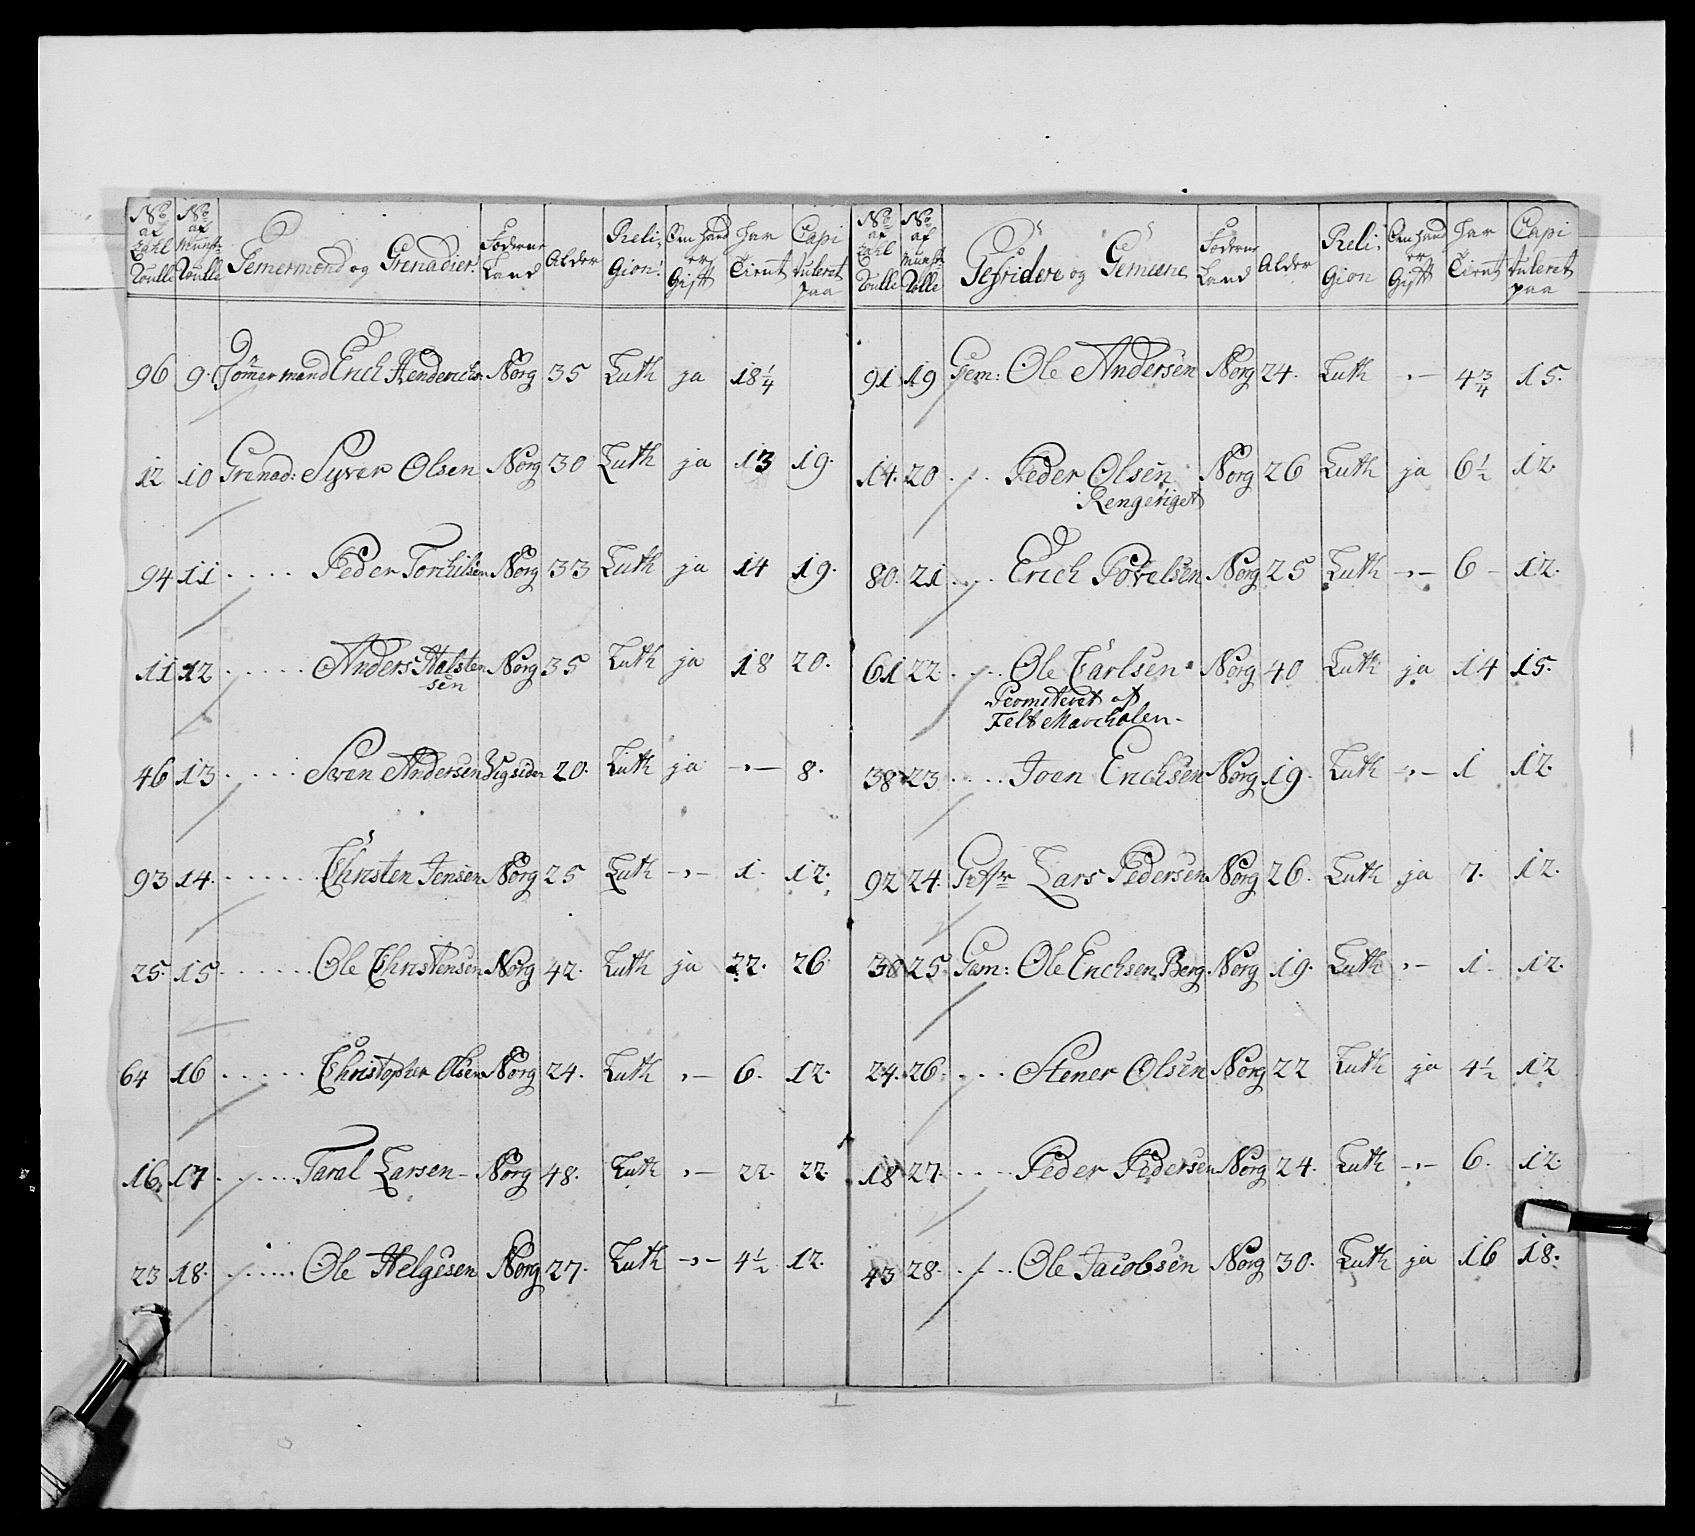 No af Zahl Roulle | No af Munst Roulle | Temermend og Grenadier | Føderne Land | Alder | Religion | Om hand er Gift | har Tient | Capituleret paa
96 9. Tömmermand Erich Hendrichs Norg 35 Luth ja 18 1/4
12 10 Grenad: Syver Olsen Norg 30 Luth ja 13 19.
94 11 .... Peder Torchilsen Norg 33 Luth ja 14 19.
11 12 ..... Anders Halsten Norg 35 Luth ja 18 20.
sen
46 13 ..... Sven Andersen 20. Luth ja -,- 8.
93 14. ...... Christen Jensen Norg 25 Luth -,- 1. 12.
25. 15. ...... Ole Christensen Norg 42. Luth ja 22. 26
64 16 ..... Christopher Olsen Norg 24. Luth ,- 6. 12.
16 17 ...... Taral Larsen - Norg 48. Luth ,- 22. 22.
23 18. ...... Ole Helgesen Norg 27. Luth -,- 4 1/2 12.
No af Zahl Roulle | No af Munst Rolle | Gefridere og Gemeene | Føderne Land | Alder | Religion | Om hand er Gift | har Tient | Capituleret paa
91 19 Gem: Ole Andersen Norg 24. Luth ,- 4 3/4 15.
14. 20 ... Peder Olsen Norg 26 Luth ja 6 1/2 12.
Rengeriget
80. 21 .... Erich Povelsen Norg 25 Luth -,- 6 - 12.
61 22 .... Ole Carlsen Norg 40 Luth ja 14 15.
Permiteret af
Felt Marchalen -
38 23 .... Joen Erichsen Norg 19. Luth -,- 1 12.
92 24. Gefr Lars Pedersen Norg 26. Luth ja 7. 12.
38 25. Gem: Ole Erichsen Berg Norg 19. Luth ,- 1 12.
24. 26. ... Stener Olsen Norg 22 Luth ja 4 1/2 12
18 27. .... Peder Pedersen Norg 24. Luth -,- 6. 12
43 28. .... Ole Jacobsen Norg 30. Luth ja 16 18.